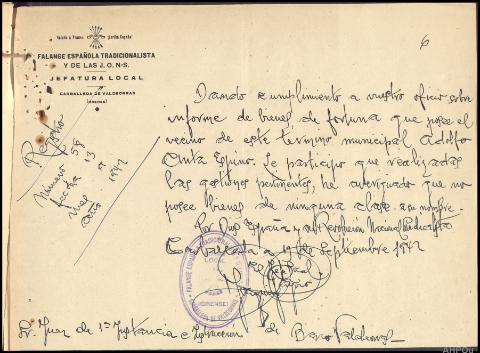 Saludo a Franco ¡Arriba España!
FALANGE ESPAÑOLA TRADICIONALISTA
Y DE LAS J. O. N-S.
JEFATURA LOCAL
CARBALLEDA DE VALDEORRAS
(ORENSE)
6
Registro
Número 58
fecha 13
mes 9
año 1942
Dando cumplimiento a vuestro oficio sobre
informe de bienes de fortuna que posee el
vecino de este termino municipal Adolfo
Espino. Le participo que realizadas
las gestiones pertinentes, he averiguado que no
posee bienes de ninguna clase a su nombre.
Por Dios España y su Revolución Nacional Sindicalista
Carballeda a de Septiembre 1942
El Jefe Local
FALANGE ESPAÑOLA TRADICIONALISTA
LOCAL
(ORENSE)
CARBALLEDA DE VALDEORRAS
Sr. Juez de 1ª Instancia e Instrucción de Barco Valdeorras
AHPOu